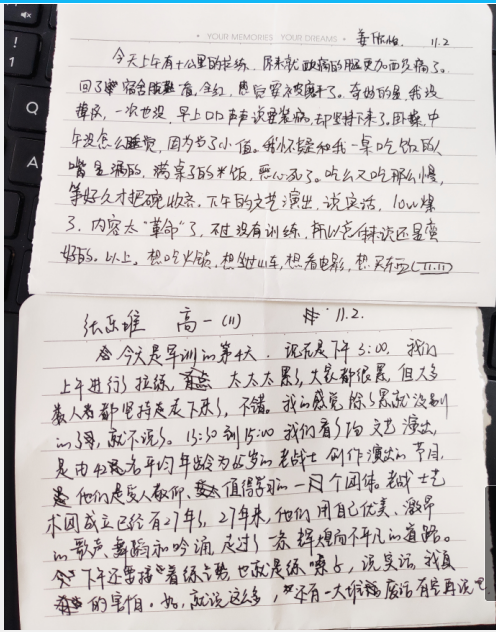 YOUR MEMORIES YOUR DREAMS
11.2
今天上午有十公里的拉练,原来就酸痛的腿更加酸痛了。
回了宿舍脱鞋看,全红,后面要被磨破了。奇妙的是,我没
掉队,一次也没,早上口口声声说要装病,却坚持下来了。中
午没怎么睡觉,因为当了小值。我怀疑和我一桌吃饭的人
嘴是漏的,满桌子的米饭,恶心死了。吃么又吃那么慢,
等好久才把碗收齐。下午的文艺演出,说实话,low爆
了,内容太“革命”了,不过没有训练,所以总体来说还是蛮
好的。以上。想吃火锅,想坐过山车,想看电影,想买东西(11.11)
张乐维 高一(11) 11.2.
今天是军训的第4天,现在是下午5:00,我们
上午进行了拉练,太太太累了,大家都很累,但大多
数人都坚持走下来了,不错。我的感觉除了累就没别
的了,就不说了。13:30到15:00我们看了场文艺演出,
是由42名平均年龄为65岁的老战士创作演出的节目,
他们是受人敬仰、太值得学习的一个团体。老战士艺
术团成立已经有27年了,27年来,他们用自己优美、激昂
的歌声、舞蹈和吟诵,走过了一条辉煌而不平凡的道路。
下午还要接着练,也就是练嗓子,说实话,我真
的害怕。就说这么多,还有一大堆废话有空再说吧
! 1
Q
A